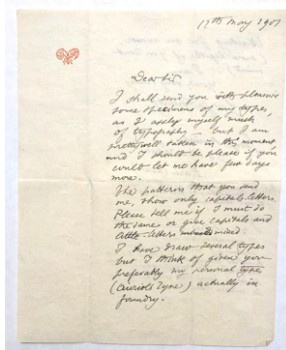 12th May 1901
Dear Sir
I shall send you with pleasure
some specimens of my types,
as I occupy myself much
of typography — but I am
pretty well taken in this moment
and I should be please if you
could let me have few days
more.
The patterns that you send
me, show only capitals letters.
Please tell me if I must do
the same or give capitals and
little letters mixed.
I have draw several types
but I think of given you
preferably my personal type
(Auriol's Type) actually in
foundry.